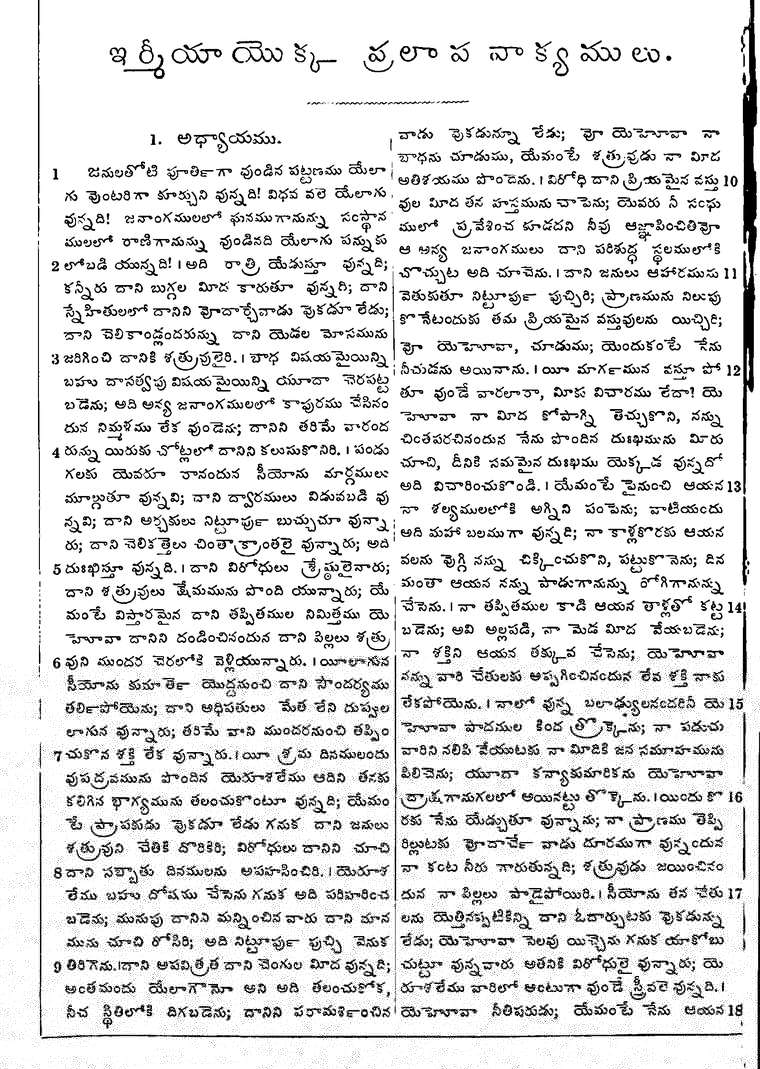 ఇర్మీయాయొక్క ప్రలాప నాక్యములు.
1. అధ్యాయము.
1 జనులతోటి పూర్తిగా వుండిన పట్టణము యేలా
గు వొంటరిగా కూర్చుని వున్నది! విధవ వలె యేలాగు
వున్నది! జనాంగములలో ఘనముగానున్న సంస్థాన
ములలో రాణిగానున్ను వుండినది యేలాగు పన్నుకు
2 లోబడి యున్నది! । అది రాత్రి యేడుస్తూ వున్నది;
కన్నీరు దాని బుగ్గల మీద కారుతూ వున్నది; దాని
స్నేహితులలో దానిని వోదార్చేవాడు వొకడూ లేడు;
దాని చెలికాండ్లందరున్ను దాని యెడల మోసమును
3 జరిగించి దానికి శత్రువులైరి. । బాధ విషయమైయిన్ని
బహు దాసత్వపు విషయమైయిన్ని యూదా చెరపట్ట
బడెను; అది అన్య జనాంగములలో కాపురము చేసినం
దున నిమ్మళము లేక వుండెను; దానిని తరిమే వారంద
4 రున్ను యిరుకు చోట్లలో దానిని కలుసుకొనిరి. । పండు
గలకు యెవరూ రానందున సీయోను మార్గములు
మూల్గుతూ వున్నవి; దాని ద్వారములు విడువబడి వు
న్నవి; దాని అర్చకులు నిట్టూర్పు బుచ్చుచూ వున్నా
రు; దాని చెలికత్తెలు చింతాక్రాంతలై వున్నారు; అది
5 దుఃఖిస్తూ వున్నది. । దాని విరోధులు శ్రేష్ఠులైనారు;
దాని శత్రువులు క్షేమమును పొంది యున్నారు; యే
మంటే విస్తారమైన దాని తప్పితముల నిమిత్తము యె
హోవా దానిని దండించినందున దాని పిల్లలు శత్రు
6 వుని ముందర చెరలోకి వెళ్లియున్నారు. । యీలాగున
సీయోను కుమార్తె యొద్దనుంచి దాని సౌందర్యము
తర్లిపోయెను; దాని అధిపతులు మేత లేని దుప్పుల
లాగున వున్నారు; తరిమే వాని ముందరనుంచి తప్పిం
7 చుకొన శక్తి లేక వున్నారు. । యీ శ్రమ దినములందు
వుపద్రవమును పొందిన యెరూశలేము ఆదిని తనకు
కలిగిన భాగ్యమును తలంచుకొంటూ వున్నది; యేమం
టే ప్రాపకుడు వొకడూ లేడు గనుక దాని జనులు
శత్రువుని చేతికి దొరికిరి; విరోధులు దానిని చూచి
8 దాని సబ్బాతు దినములను అపహసించిరి. । యెరూశ
లేము బహు దోషము చేసెను గనుక అది పరిహరించ
బడెను; మునుపు దానిని మన్నించిన వారు దాని మాన
మును చూచి రోసిరి; అది నిట్టూర్పు పుచ్చి వెనుక
9 తిరిగెను. ।దాని అపవిత్రత దాని చెంగుల మీద వున్నది;
అంతమందు యేలాగౌనో అని అది తలంచుకోక,
నీచ స్థితిలోకి దిగబడెను; దానిని పరామర్శించిన
వాడు వొకడున్నూ లేడు; వో యెహోవా నా
బాధను చూడుము, యేమంటే శత్రువుడు నా మీద
అతిశయము పొందెను. । విరోధి దాని ప్రియమైన వస్తు 10
వుల మీద తన హస్తమును చాపెను; యెవరు నీ సంఘ
ములో ప్రవేశించ కూడదని నీవు ఆజ్ఞాపించితివో
ఆ అన్య జనాంగములు దాని పరిశుద్ధ స్థలములోకి
చొచ్చుట అది చూచెను. । దాని జనులు ఆహారమును 11
వెతుకుతూ నిట్టూర్పు పుచ్చిరి; ప్రాణమును నిలుపు
కొనేటందుకు తమ ప్రియమైన వస్తువులను యిచ్చిరి;
వో యెహోవా, చూడుము; యెందుకంటే నేను
నీచుడను అయినాను. । యీ మార్గమున వస్తూ పో 12
తూ వుండే వారలారా, మీకు విచారము లేదా! యె
హోవా నా మీద కోపాగ్ని తెచ్చుకొని, నన్ను
చింతపరచినందున నేను పొందిన దుఃఖమును మీరు
చూచి, దీనికి సమమైన దుఃఖము యెక్కడ వున్నదో
అది విచారించుకొండి. । యేమంటే పైనుంచి ఆయన 13
నా శల్యములలోకి అగ్నిని పంపెను; వాటియందు
అది మహా బలముగా వున్నది; నా కాళ్లకొరకు ఆయన
వలను వొగ్గి నన్ను చిక్కించుకొని, పట్టుకొనెను; దిన
మంతా ఆయన నన్ను పాడుగానున్ను రోగిగానున్ను
చేసెను. । నా తప్పితముల కాడి ఆయన తాళ్లతో కట్ట 14
బడెను; అవి అల్లపడి, నా మెడ మీద వేయబడెను;
నా శక్తిని ఆయన తక్కువ చేసెను; యెహోవా
నన్ను వారి చేతులకు అప్పగించినందున లేవ శక్తి నాకు
లేకపోయెను. । నాలో వున్న బలాఢ్యులనందరినీ యె 15
హోవా పాదముల కింద త్రొక్కెను; నా పడుచు
వారిని నలిపి వేయుటకు నా మీదికి జన సమూహమును
పిలిచెను; యూదా కన్యాకుమారికను యెహోవా
ద్రాక్షగానుగలలో అయినట్టు తొక్కెను. । యిందు కొ 16
రకు నేను యేడ్చుతూ వున్నాను; నా ప్రాణము తెప్ప
రిల్లుటకు వోదార్చే వాడు దూరముగా వున్నందున
నా కంట నీరు గారుతున్నది; శత్రువుడు జయించినం
దున నా పిల్లలు పాడైపోయిరి. । సీయోను తన చేతు 17
లను యెత్తినప్పటికిన్ని దాని ఓదార్చుటకు వొకడున్ను
లేడు; యెహోవా సెలవు యిచ్చెను గనుక యాకోబు
చుట్టూ వున్నవారు అతనికి విరోధులై వున్నారు; యె
రూశలేము వారిలో అంటుగా వుండే స్త్రీవలె వున్నది. ।
యెహోవా నీతిపరుడు; యేమంటే నేను ఆయన 18